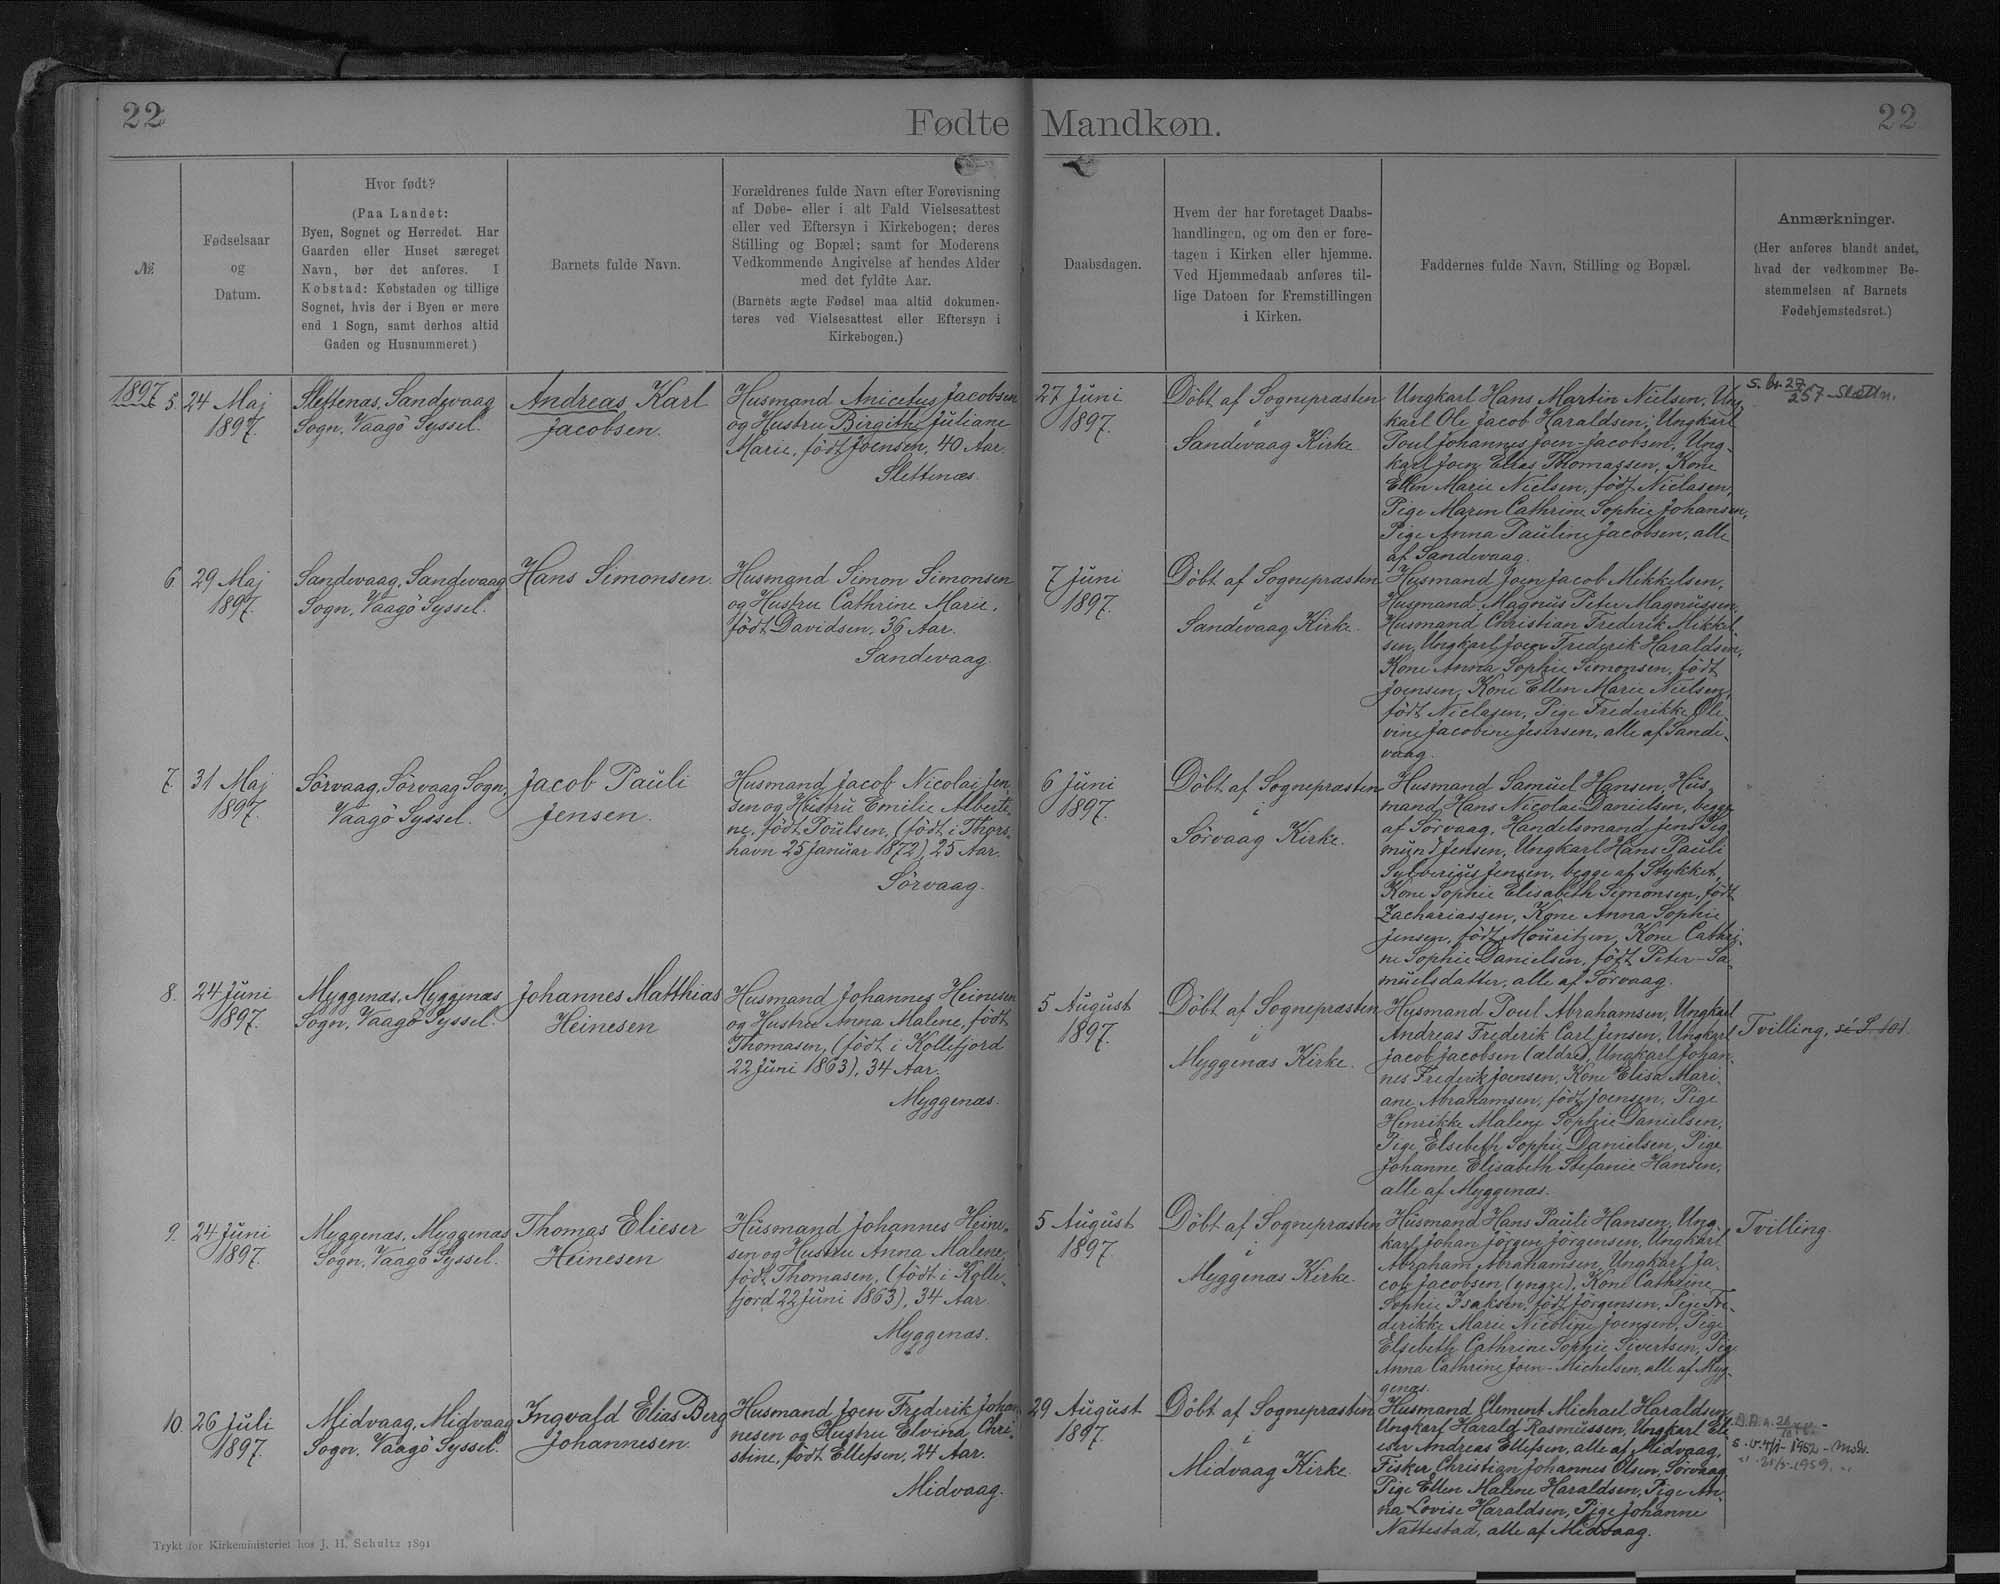 22
Fødte Mandkøn.
22
№
Fødselsaar
og
Datum.
Hvor født?
(Paa Landet:
Byen, Sognet og Herredet. Har
Gaarden eller Huset særeget
Navn, bør det anføres. I
Købstad: Købstaden og tillige
Sognet, hvis der i Byen er mere
end 1 Sogn, samt derhos altid
Gaden og Husnummeret.)
Barnets fulde Navn.
Forældrenes fulde Navn efter Forevisning
af Døbe- eller i alt Fald Vielsesattest
eller ved Eftersyn i Kirkebogen; deres
Stilling og Bopæl; samt for Moderens
Vedkommende Angivelse af hendes Alder
med det fyldte Aar.
(Barnets ægte Fødsel maa altid dokumen-
teres ved Vielsesattest eller Eftersyn i
Kirkebogen.)
Daabsdagen.
Hvem der har foretaget Daabs-
handlingen, og om den er fore-
tagen i Kirken eller hjemme.
Ved Hjemmedaab anføres til-
lige Datoen for Fremstillingen
i Kirken.
Faddernes fulde Navn, Stilling og Bopæl.
Anmærkninger.
(Her anføres blandt andet,
hvad der vedkommer Be-
stemmelsen af Barnets
Fødehjemstedsret.)
1897
5.
24 Maj
1897.
Slettenæs, Sandevaag
Sogn, Vaagö Syssel.
Andreas Karl
Jacobsen.
Husmand Anicetus Jacobsen
og Hustru Birgithe Juliane
Marie, født Joensen, 40 Aar.
Slettenæs.
27 Juni
1897.
Döbt af Sognepræsten
i
Sandevaag Kirke.
Ungkarl Hans Martin Nielsen, Ung-
karl Ole Jacob Haraldsen, Ungkarl
Poul Johannes Joen-Jacobsen, Ung-
karl Joen Elias Thomassen, Kone
Ellen Marie Nielsen, født Niclasen,
Pige Maren Cathrine Sophie Johansen,
Pige Anna Pauline Jacobsen, alle
af Sandevaag.
s. br. 27
257
6.
29 Maj
1897.
Sandevaag, Sandevaag
Sogn, Vaagö Syssel.
Hans Simonsen.
Husmand Simon Simonsen
og Hustru Cathrine Marie,
født Davidsen, 36 Aar.
Sandevaag.
7 Juni
1897.
Döbt af Sognepræsten
i
Sandevaag Kirke.
Husmand Joen Jacob Mikkelsen,
Husmand Magnus Peter Magnussen,
Husmand Christian Frederik Mikkel-
sen, Ungkarl Joen Frederik Haraldsen,
Kone Anna Sophie Simonsen, født
Joensen, Kone Ellen Marie Nielsen,
født Niclasen, Pige Frederikke Oli-
vine Jacobine Jesersen, alle af Sande-
vaag.
7.
31 Maj
1897.
Sörvaag, Sörvaag Sogn,
Vaagö Syssel.
Jacob Pauli
Jensen.
Husmand Jacob Nicolai Jen-
sen og Hustru Emilie Alberti-
ne, født Poulsen, (født i Thors-
havn 25 Januar 1872), 25 Aar.
Sörvaag.
6 Juni
1897.
Döbt af Sognepræsten
i
Sörvaag Kirke.
Husmand Samuel Hansen, Hus-
mand Hans Nicolai Danielsen, begge
af Sörvaag, Handelsmand Jens Sig-
mund Jensen, Ungkarl Hans Pauli
Sylverius Jensen, begge af Stykket,
Kone Sophie Elisabeth Simonsen, født
Zachariassen, Kone Anna Sophie
Jensen, født Mouritzen, Kone Cathri-
ne Sophie Danielsen, født Peter-Sa-
muelsdatter, alle af Sörvaag.
8.
24 Juni
1897.
Myggenæs, Myggenæs
Sogn, Vaagö Syssel.
Johannes Matthias
Heinesen
Husmand Johannes Heinesen
og Hustru Anna Malene, født
Thomasen, (født i Kollefjord
22 Juni 1863), 34 Aar.
Myggenæs.
5 August
1897.
Döbt af Sognepræsten
i
Myggenæs Kirke.
Husmand Poul Abrahamsen, Ungkarl
Andreas Frederik Carl Jensen, Ungkarl
Jacob Jacobsen (ældre), Ungkarl Johan-
nes Frederik Joensen, Kone Elisa Mari-
ane Abrahamsen, født Joensen, Pige
Henrikke Malene Sophie Danielsen,
Pige Elsebeth Sophie Danielsen, Pige
Johanne Elisabeth Stefanie Hansen,
alle af Myggenæs.
Tvilling, se S. 101.
9.
24 Juni
1897.
Myggenæs, Myggenæs
Sogn, Vaagö Syssel.
Thomas Elieser
Heinesen
Husmand Johannes Heine-
sen og Hustru Anna Malene,
født Thomasen, (født i Kolle-
fjord 22 Juni 1863), 34 Aar.
Myggenæs.
5 August
1897.
Döbt af Sognepræsten
i
Myggenæs Kirke.
Husmand Hans Pauli Hansen, Ung-
karl Johan Jörgen Jörgensen, Ungkarl
Abraham Abrahamsen, Ungkarl Ja-
cob Jacobsen (yngre), Kone Cathrine
Sophie Isaksen, født Jörgensen, Pige Fre-
derikke Marie Nicoline Joensen, Pige
Elsebeth Cathrine Sophie Sivertsen, Pige
Anna Cathrine Joen-Michelsen, alle af Myg-
genæs.
Tvilling.
10.
26 Juli
1897.
Midvaag, Midvaag
Sogn, Vaagö Syssel.
Ingvald Elias Berg
Johannesen.
Husmand Joen Frederik Johan-
nesen og Hustru Elvina Chri-
stine, født Ellefsen, 24 Aar.
Midvaag.
29 August
1897.
Döbt af Sognepræsten
i
Midvaag Kirke.
Husmand Clement Michael Haraldsen,
Ungkarl Harald Rasmussen, Ungkarl Eli-
eser Andreas Ellefsen, alle af Midvaag,
Fisker Christian Johannes Olsen, Sörvaag,
Pige Ellen Malene Haraldsen, Pige An-
na Lovise Haraldsen, Pige Johanne
Nattestad, alle af Midvaag.
1952
1959
Trykt for Kirkeministeriet hos J. H. Schultz 1891